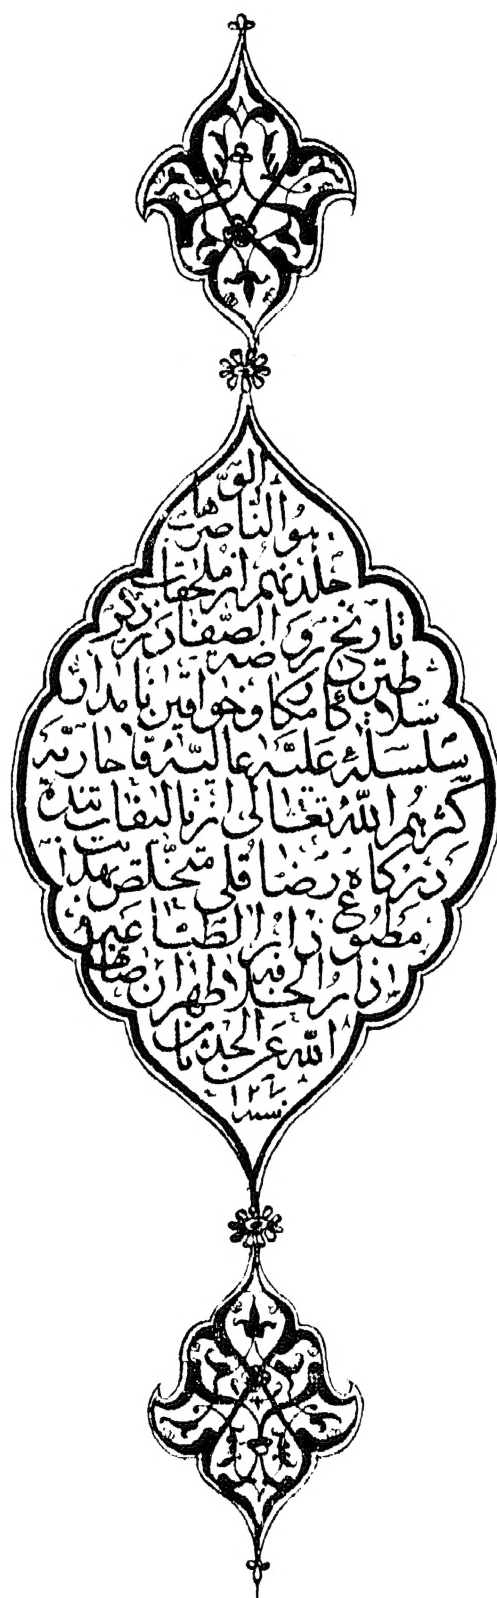 هو الناصر الوهاب
جلد نهم از ملحقات
تاریخ روضه الصفا در ذکر
سلاطین کامکار و خواقین نامدار
سلسله علیّه عالیّه قاجاریّه
کثرهم الله تعالی از تالیفات بنده
درگاه رضا قلی متخلص بهدایت
مطبوع دار الطباعه
دار الخلافه طهران صانها
الله عن الحدثان